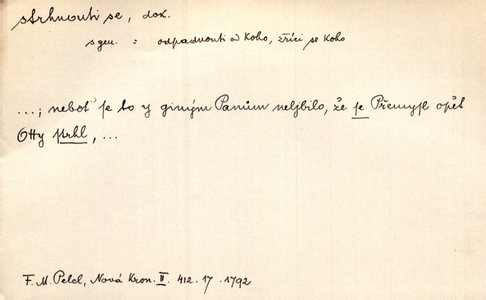 strhnouti se, dok.
s gen. = odpadnouti od koho, zříci se koho
...; neboť se to y giným Panům neljbilo, že se Přemysl opět
Otty strhl, ...
F. M. Pelcl, Nová Kron. II. 412. 17. 1792